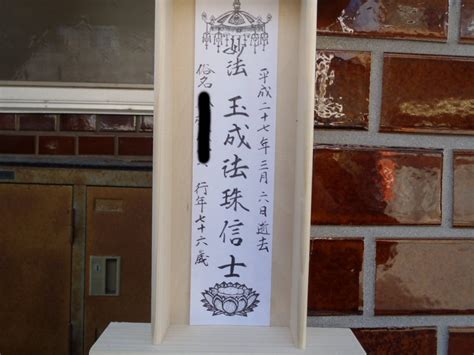 平成二十七年三月六日逝去
妙法 玉成法珠信士
俗名
行年七十六歳